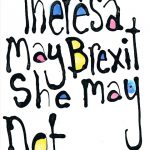 Theresa
may Brexit
She may
Not